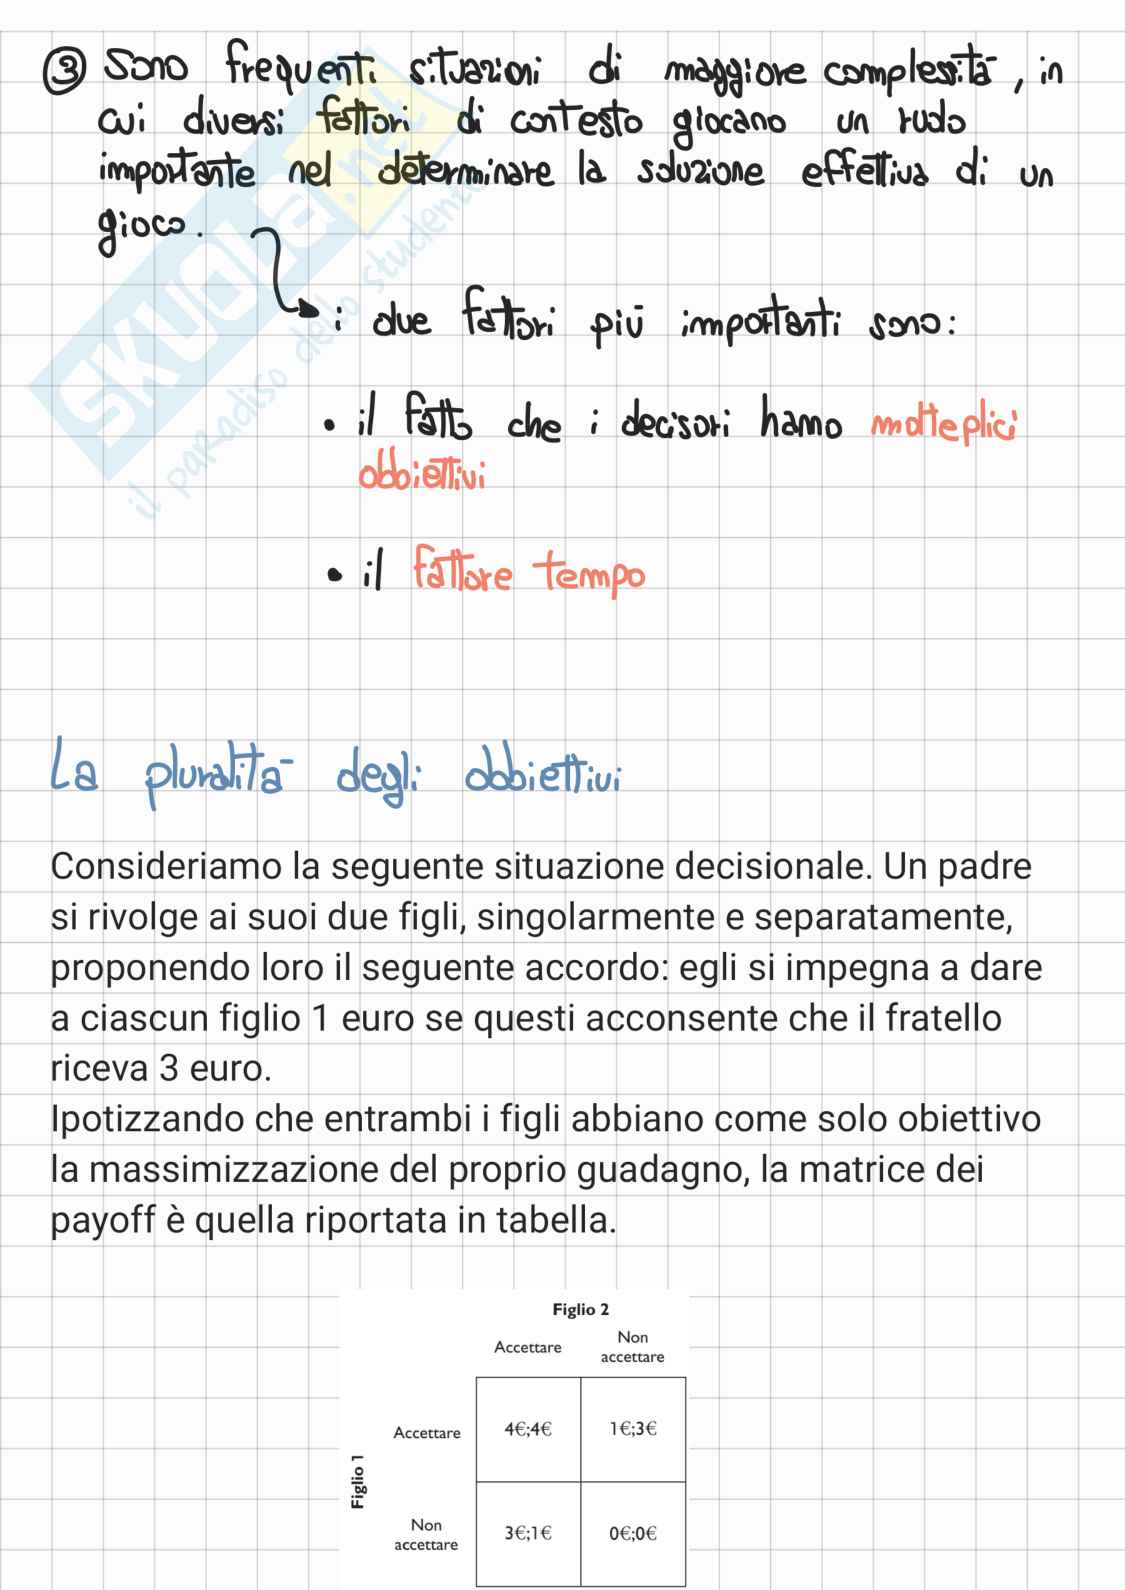 ③ Sono frequenti situazioni di maggiore complessità, in
cui diversi fattori di contesto giocano un ruolo
importante nel determinare la soluzione effettiva di un
gioco.
i due fattori più importanti sono:
• il fatto che i decisori hanno molteplici
obbiettivi
• il fattore tempo
SKUOLA.net
il paradiso dello studente
La pluralità degli obbiettivi
Consideriamo la seguente situazione decisionale. Un padre
si rivolge ai suoi due figli, singolarmente e separatamente,
proponendo loro il seguente accordo: egli si impegna a dare
a ciascun figlio 1 euro se questi acconsente che il fratello
riceva 3 euro.
Ipotizzando che entrambi i figli abbiano come solo obiettivo
la massimizzazione del proprio guadagno, la matrice dei
payoff è quella riportata in tabella.
Figlio 2
Accettare Non
accettare
Accettare 4€;4€ 1€;3€
Figlio 1
Non
accettare 3€;1€ 0€;0€